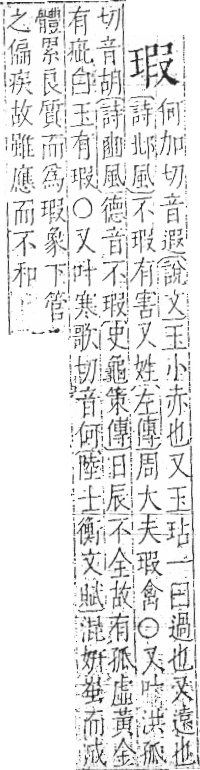 瑕
何加切音遐說文玉小赤也又玉玷一曰過也又遠也
詩邶風不瑕有害又姓左傳周大夫瑕禽○又叶洪孤
切音胡詩豳風德音不瑕史龜策傳日辰不全故有孤虛黃金
有疵白玉有瑕○又叶寒歌切音何陸士衡文賦混姸蚩而成
體累良質而爲瑕象下管
之偏疾故雖應而不和